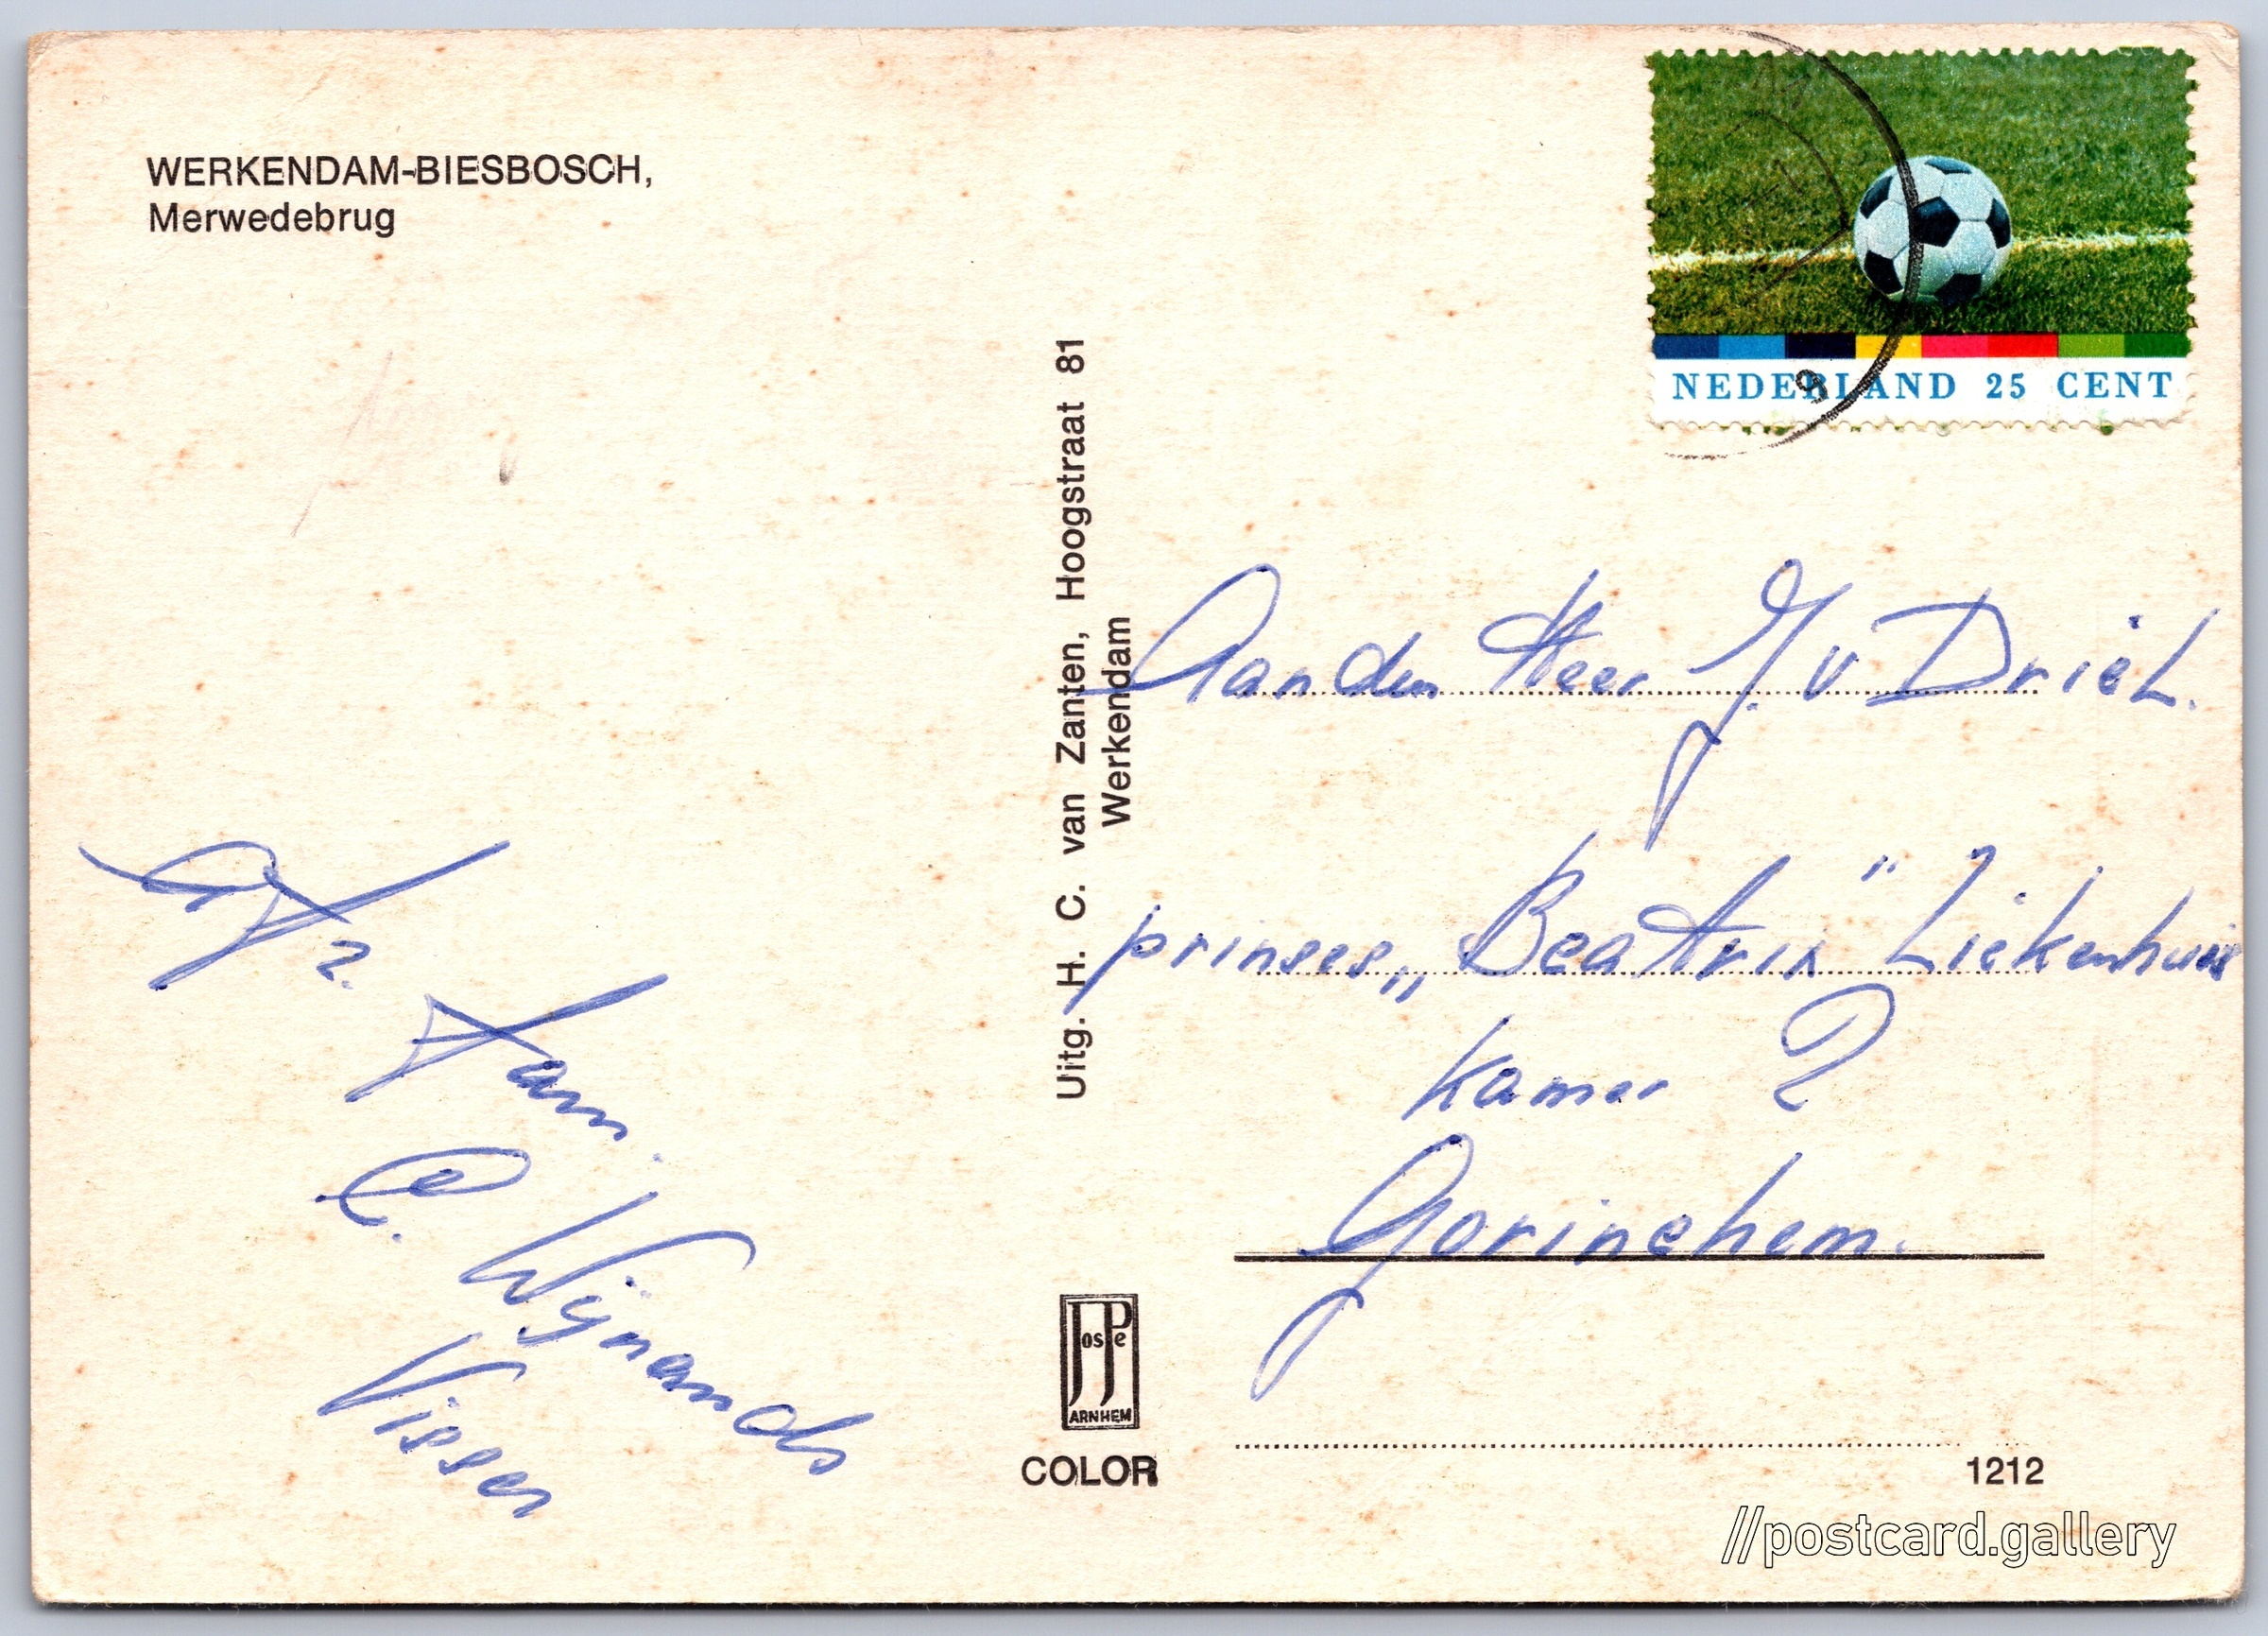 WERKENDAM-BIESBOSCH,
Merwedebrug
Fam.
C. Wijnands
Visser
Uitg. H. C. van Zanten, Hoogstraat 81
Werkendam
JosPe
ARNHEM
COLOR
NEDERLAND 25 CENT
Aan den Heer J. v Driel.
prinses „Beatrix" Ziekenhuis
Kamer 2
Gorinchem.
1212
//postcard.gallery